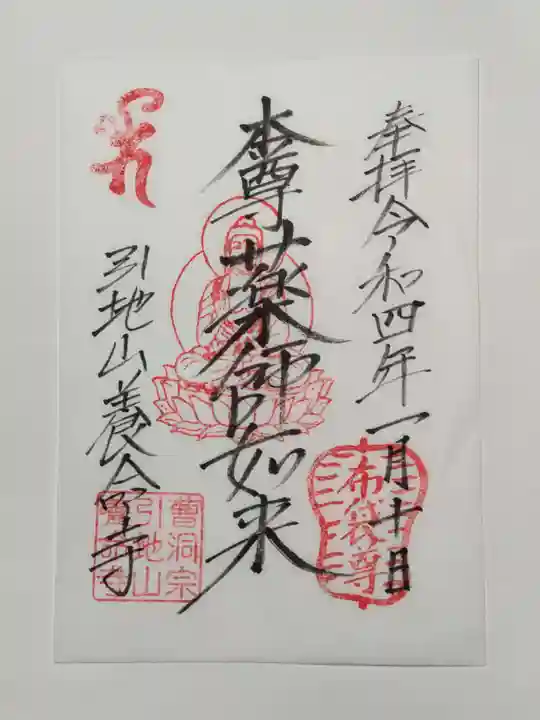 奉拝 令和四年一月十日
布袋尊
本尊薬師如来
引地山養命寺
曹洞宗
引地山
養命寺